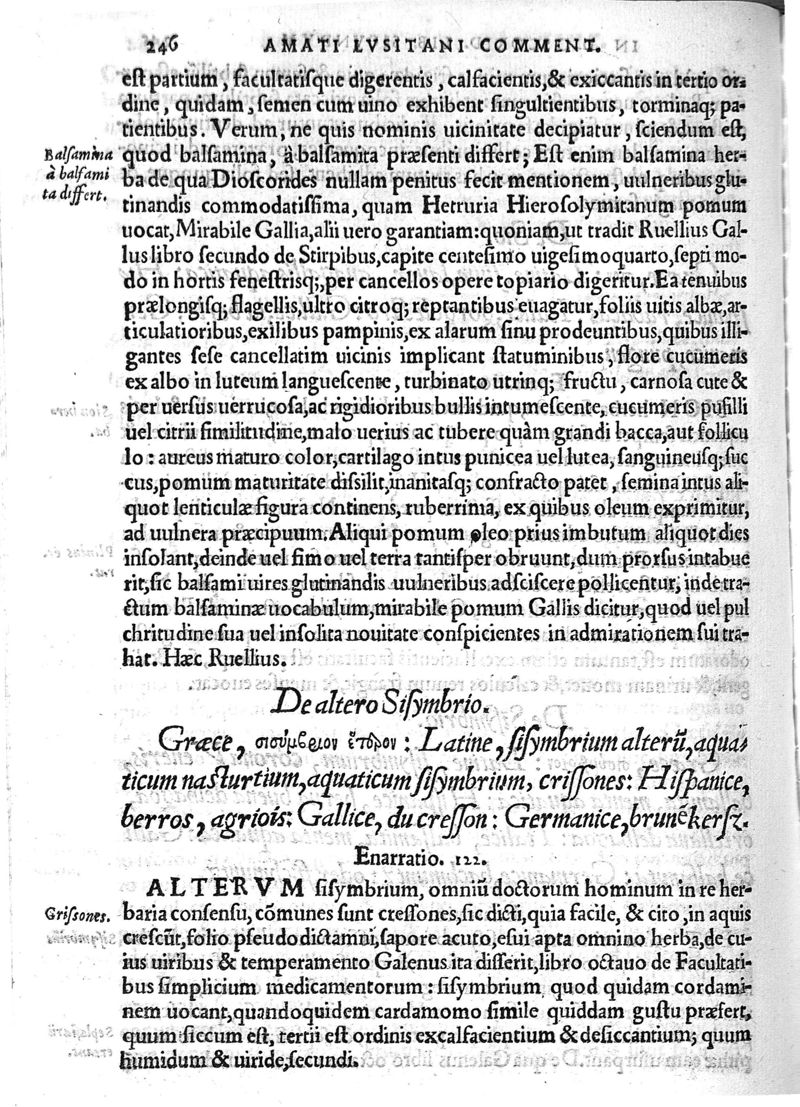 246 AMATI LVSITANI COMMENT.
est partium, facultatisque digerentis, calfacientis, & exiccantis in tertio or-
dine, quidam, semen cum uino exhibent singultientibus, torminaq; pa-
tientibus. Verum, ne quis nominis uicinitate decipiatur, sciendum est,
Balsamina
à balsami
ta differt.
quod balsamina, à balsamita præsenti differt; Est enim balsamina her-
ba de qua Dioscorides nullam penitus fecit mentionem, uulneribus glu-
tinandis commodatissima, quam Hetruria Hierosolymitanum pomum
uocat, Mirabile Gallia, alii uero garantiam: quoniam, ut tradit Ruellius Gal-
lus libro secundo de Stirpibus, capite centesimo uigesimoquarto, septi mo-
do in hortis fenestrisq;, per cancellos opere topiario digeritur. Ea tenuibus
prælongisq; flagellis, ultro citroq; reptantibus euagatur, foliis uitis albæ, ar-
ticulatioribus, exilibus pampinis, ex alarum sinu prodeuntibus, quibus illi-
gantes sese cancellatim uicinis implicant statuminibus, flore cucumeris
ex albo in luteum languescente, turbinato utrinq; fructu, carnosa cute &
per uersus uerrucosa, ac rigidioribus bullis intumescente, cucumeris pusilli
uel citrii similitudine, malo uerius ac tubere quàm grandi bacca, aut follicu
lo: aureus maturo color, cartilago intus punicea uel lutea, sanguineusq; suc
cus, pomum maturitate dissilit, inanitasq; confracto patet, semina intus ali-
quot lenticulæ figura continens, ruberrima, ex quibus oleum exprimitur,
ad uulnera præcipuum. Aliqui pomum oleo prius imbutum aliquot dies
insolant, deinde uel fimo uel terra tantisper obruunt, dum prorsus intabue
rit, sic balsami uires glutinandis uulneribus adsciscere pollicentur, inde tra-
ctum balsaminæ uocabulum, mirabile pomum Gallis dicitur, quod uel pul
chritudine sua uel insolita nouitate conspicientes in admirationem sui tra-
hat. Hæc Ruellius.
De altero Sisymbrio.
Græce, σισύμβριον ἕτερον: Latine, sisymbrium alterũ, aqua-
ticum nasturtium, aquaticum sisymbrium, crissones: Hispanice,
berros, agriois: Gallice, du cresson: Germanice, brunẽkersz.
Enarratio. 122.
ALTERVM sisymbrium, omniũ doctorum hominum in re her-
Grissones.
baria consensu, cõmunes sunt cressones, sic dicti, quia facile, & cito, in aquis
crescũt, folio pseudodictamni, sapore acuto, esui apta omnino herba, de cu-
ius uiribus & temperamento Galenus ita disserit, libro octauo de Facultati-
bus simplicium medicamentorum: sisymbrium, quod quidam cordami-
nem uocant, quandoquidem cardamomo simile quiddam gustu præfert,
quum siccum est, tertii est ordinis excalfacientium & desiccantium; quum
humidum & uiride, secundi.